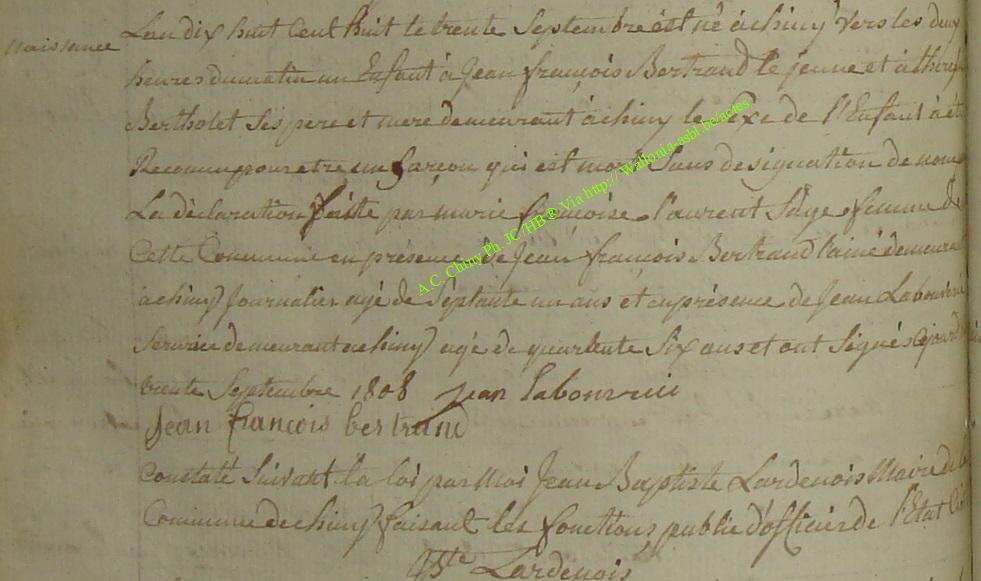 naissance
Lan dix huit Cent huit le trente Septembre est né à chiny vers les deux
heures du matin un Enfant à Jean françois Bertrand le jeune et à therese
Bertholet Ses pere et mere demeurant à chiny le Sexe de l'Enfant à été
Reconnu pour etre un garçon qui est mort Sans designation de nom
La dèclaration faitte par marie françoise laurent Sage femme de
Cette Commune en présence de Jean françois Bertrand lainé demeurant
à chiny Journalier agé de Séptante un ans et en présence de Jean
demeurant a chiny agé de quarente Six ans et ont Signé
trente Septembre 1808 Jean
Jean francois bertrand
Constaté Suivant la loi par Moi Jean Baptiste Lardenois Maire de la
Commune de chiny faisant les fonctions public d'officier de l'Etat Civil
Lardenois
A.C. Chiny Ph. JC/HB® Via http://Wallonia-asbl.be/actes